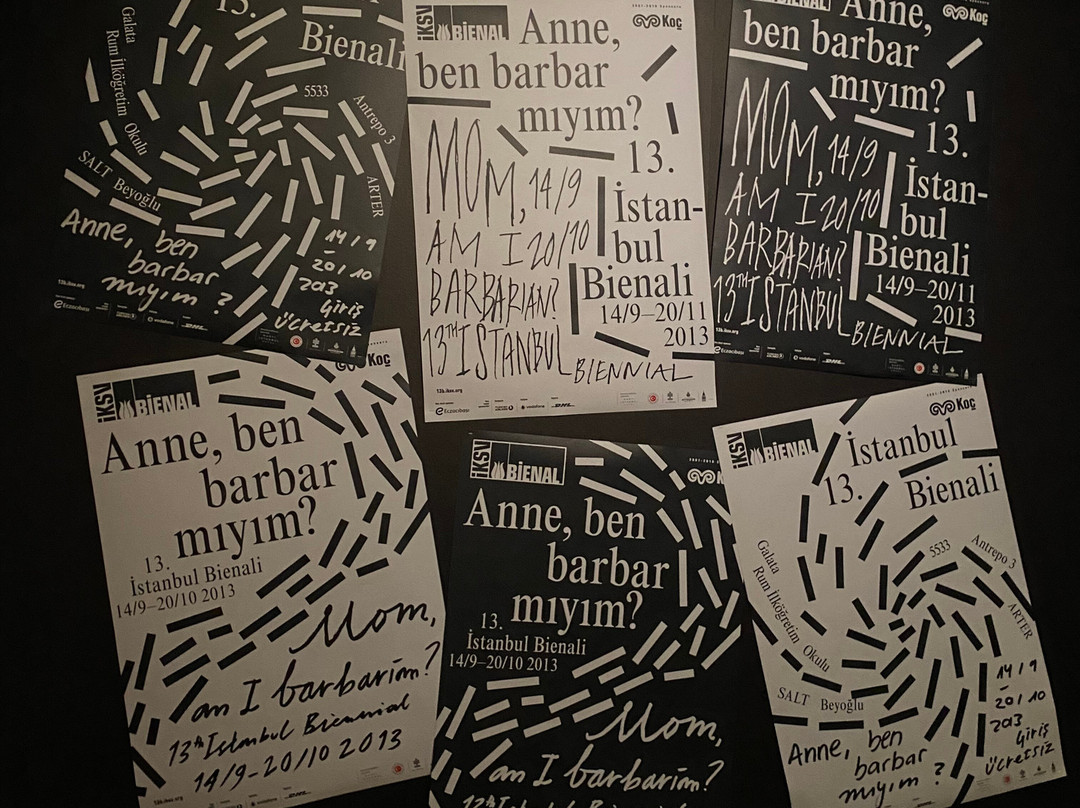 13.
Bienali
Galata
Rum İlköğretim
Okulu
5533
Antrepo 3
ARTER
SALT Beyoğlu
Anne, ben
barbar
mıyım?
14/9
–
20/10
2013
Giriş
ücretsiz
13b.iksv.org
Eczacıbaşı
vodafone
DHL
İKSV BİENAL
Koç
Anne,
ben barbar
mıyım?
13.
İstan-
bul
Bienali
14/9–20/11
2013
MOM, 14/9
AM I 20/10
BARBARIAN?
13TH ISTANBUL
BIENNIAL
13b.iksv.org
Eczacıbaşı
vodafone
DHL
Koç
Anne,
ben barbar
mıyım?
13.
İstan-
bul
Bienali
14/9–20/11
2013
MOM, 14/9
AM I 20/10
BARBARIAN?
13TH ISTANBUL
BIENNIAL
13b.iksv.org
Eczacıbaşı
vodafone
DHL
İKSV BİENAL
Koç
Anne, ben
barbar
mıyım?
13.
İstanbul Bienali
14/9–20/10 2013
Mom,
am I barbarian?
13th Istanbul Biennial
14/9-20/10 2013
13b.iksv.org
DHL
İKSV BİENAL
Anne, ben
barbar
mıyım?
13.
İstanbul Bienali
14/9–20/10 2013
Mom,
am I barbarian?
İKSV BİENAL
Koç
İstanbul
13. Bienali
Galata
Rum İlköğretim
Okulu
5533
Antrepo 3
ARTER
SALT Beyoğlu
Anne, ben
barbar
mıyım?
14/9
–
20/10
2013
Giriş
ücretsiz